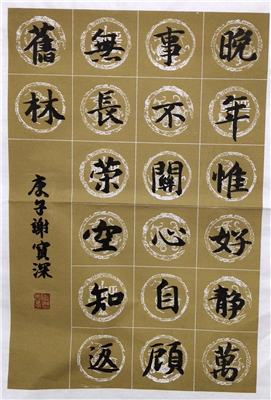 晚年惟好靜萬
事不關心自顧
無長策空知返
舊林
庚子謝寶深